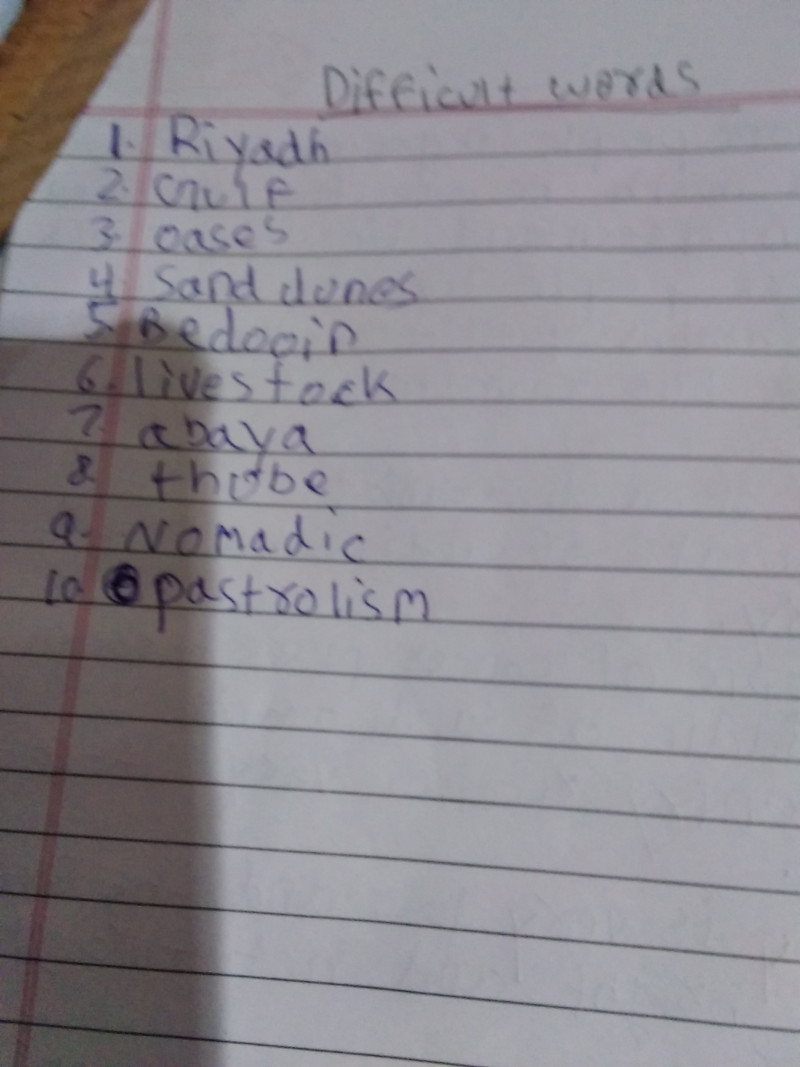 Difficult words
1. Riyadh
2. Gulf
3. oases
4. Sand dunes
5. Bedooin
6. livestock
7. abaya
8. thobe
9. Nomadic
10 pastrolism